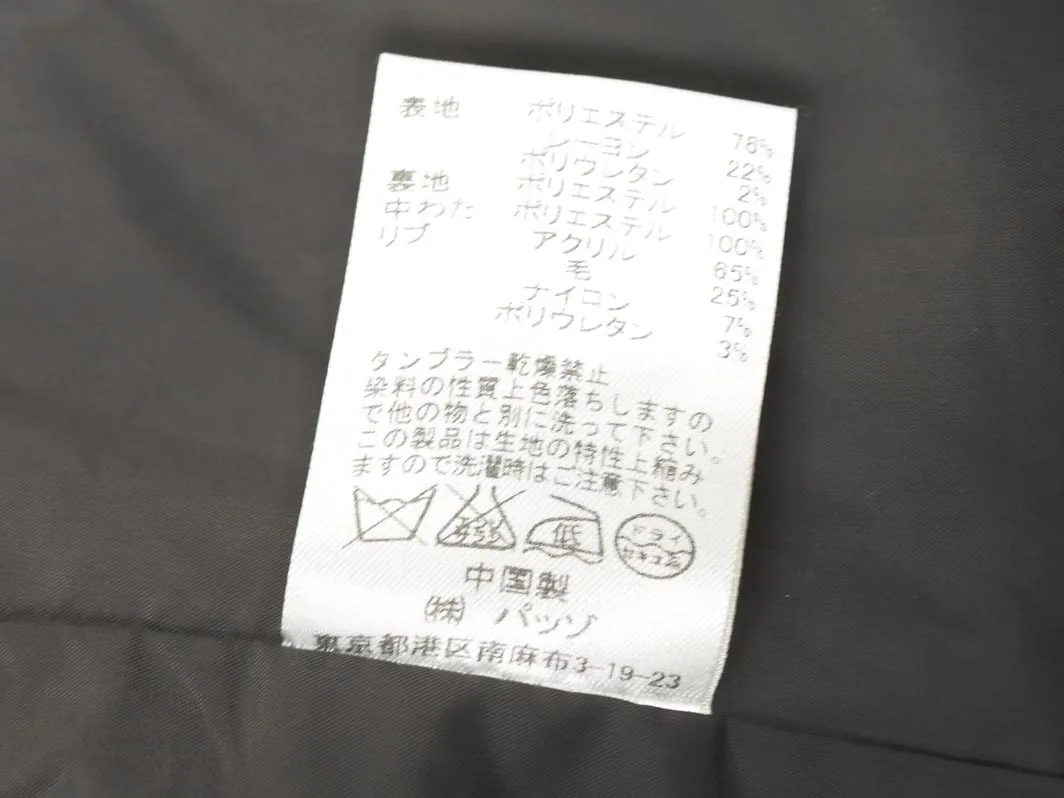 表地 ポリエステル 78%
レーヨン 22%
ポリウレタン 2%
裏地 ポリエステル 100%
中わた ポリエステル 100%
リブ アクリル 65%
毛 25%
ナイロン 7%
ポリウレタン 3%
タンブラー乾燥禁止
染料の性質上色落ちしますの
で他の物と別に洗って下さい。
この製品は生地の特性上縮み
ますので洗濯時はご注意下さい。
エンソサラシ 低 ドライ
セキユ系
中国製
㈱ パッゾ
東京都港区南麻布3-19-23